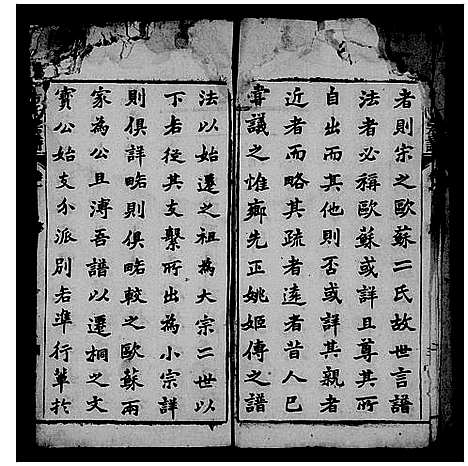 者則宋之歐蘇二氏故世言譜
法者必稱歐蘇或詳且尊其所
自出而其他則否或詳其親者
近者而略其疏者遠者昔人已
嘗議之惟鄉先正姚姬傳之譜
法以始遷之祖為大宗二世以
下各從其支繫所出為小宗詳
則俱詳略則俱略較之歐蘇兩
家為公且溥吾譜以遷桐之文
寶公始支分派別各準行輩於